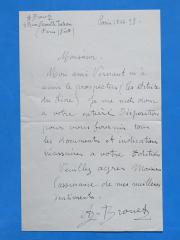 A. Brouet
Paris
Monsieur.
Mon ami Vernant m'a
remis le prospectus (les
du livre) je me mets donc
à votre entière disposition
pour vous fournir tous
les documents et indications
nécessaires à votre
Veuillez agréer Monsieur
l'assurance de mes meilleurs
sentiments.
A. Brouet